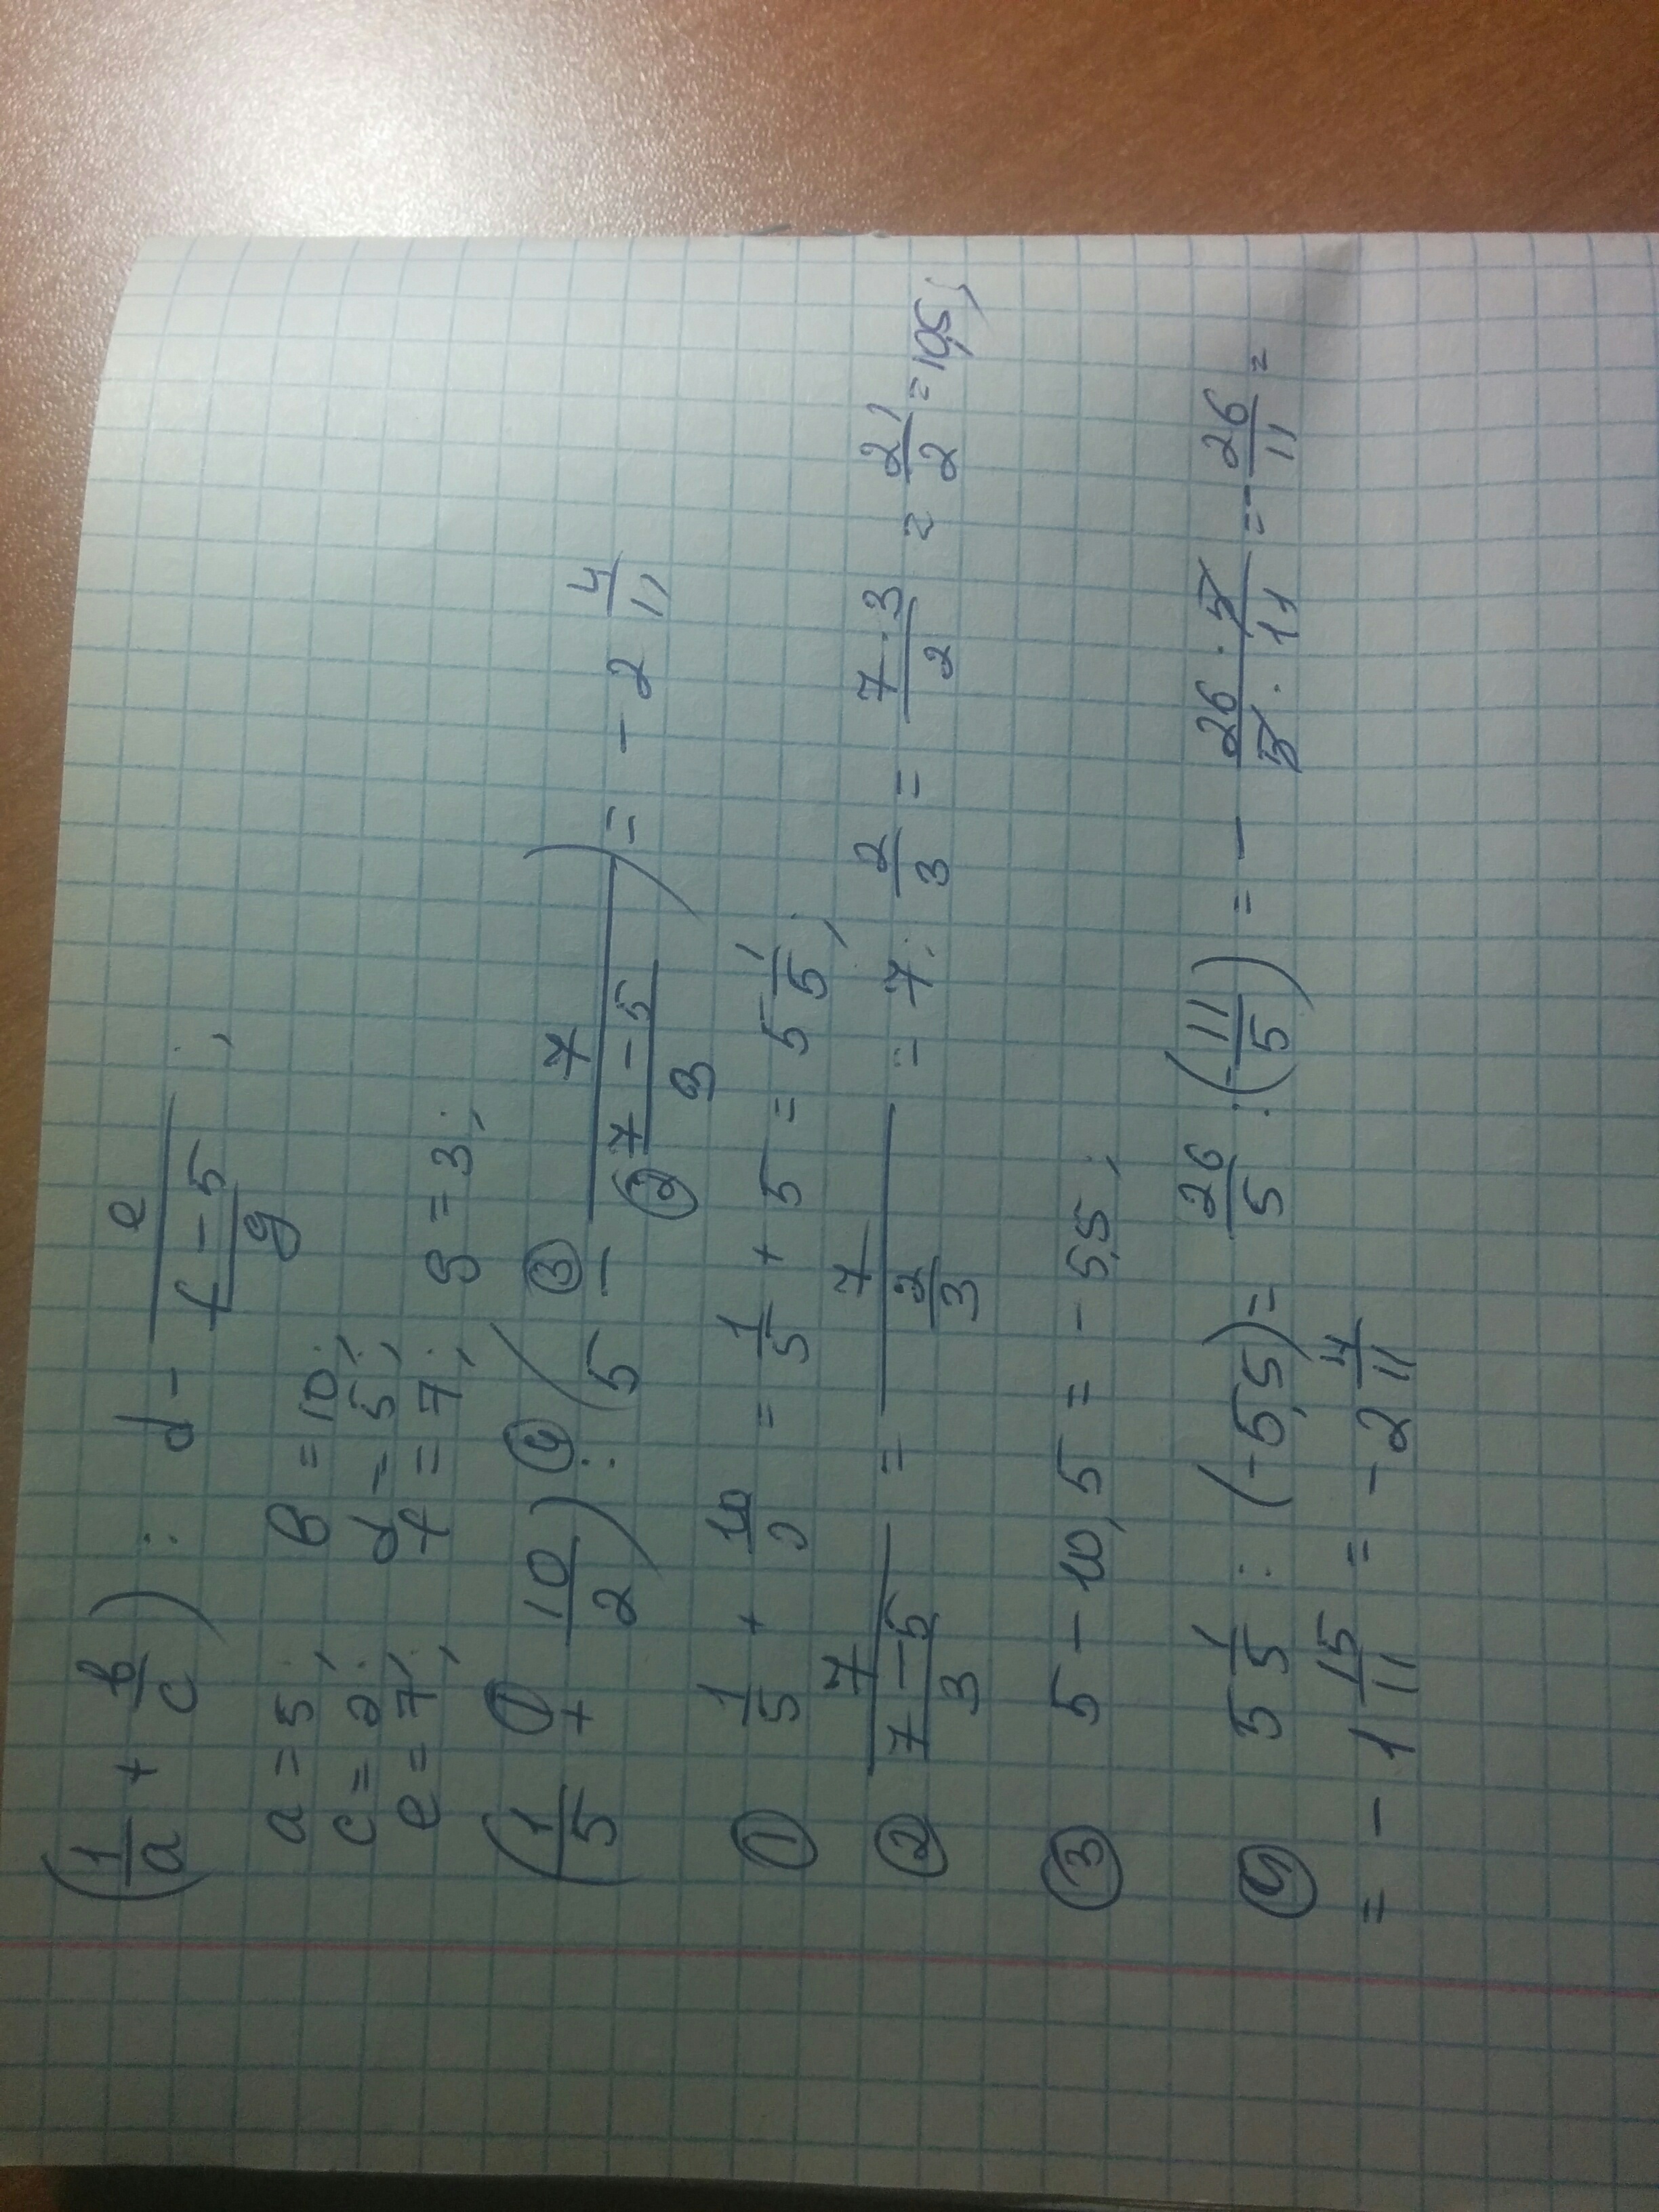 (1/a + b/c) : d - e/((f-5)/g) ;
a = 5; b = 10;
c = 2; d = 5;
e = 7; f = 7; g = 3;
(1/5 + ① 10/2) ④ : (5 ③ - 7/(② (7-5)/3)) = - 2 4/11
① 1/5 + 10/2 = 1/5 + 5 = 5 1/5 ;
② 7/((7-5)/3) = 7/(2/3) = 7 : 2/3 = 7·3/2 = 21/2 = 10,5;
③ 5 - 10,5 = - 5,5 ;
④ 5 1/5 : (-5,5) = 26/5 : (-11/5) = - 26·5/5·11 = - 26/11 =
= - 1 15/11 = - 2 4/11